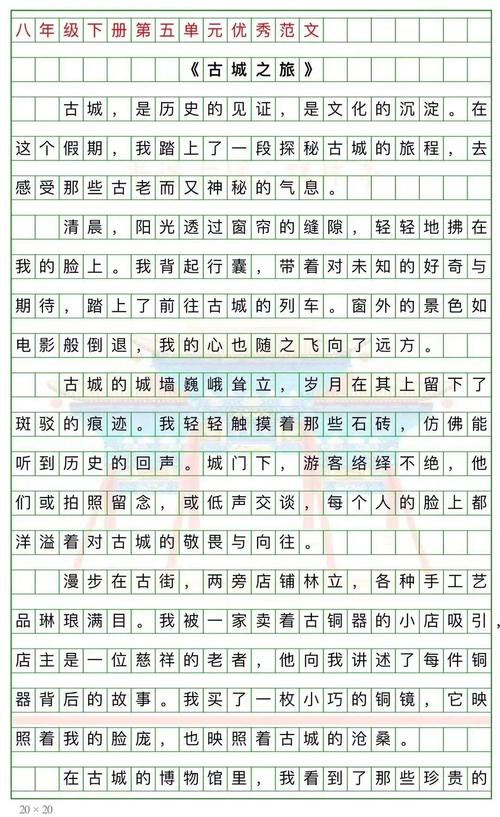 八年级下册第五单元优秀范文
《古城之旅》
古城，是历史的见证，是文化的沉淀。在
这个假期，我踏上了一段探秘古城的旅程，去
感受那些古老而又神秘的气息。
清晨，阳光透过窗帘的缝隙，轻轻地拂在
我的脸上。我背起行囊，带着对未知的好奇与
期待，踏上了前往古城的列车。窗外的景色如
电影般倒退，我的心也随之飞向了远方。
古城的城墙巍峨耸立，岁月在其上留下了
斑驳的痕迹。我轻轻触摸着那些石砖，仿佛能
听到历史的回声。城门下，游客络绎不绝，他
们或拍照留念，或低声交谈，每个人的脸上都
洋溢着对古城的敬畏与向往。
漫步在古街，两旁店铺林立，各种手工艺
品琳琅满目。我被一家卖着古铜器的小店吸引，
店主是一位慈祥的老者，他向我讲述了每件铜
器背后的故事。我买了一枚小巧的铜镜，它映
照着我的脸庞，也映照着古城的沧桑。
在古城的博物馆里，我看到了那些珍贵的
20 × 20